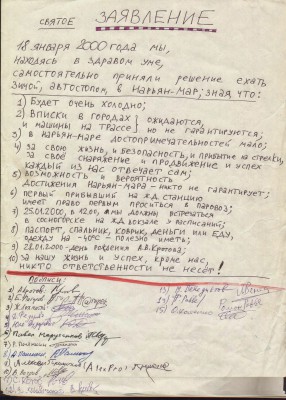 СВЯТОЕ ЗАЯВЛЕНИЕ
18 января 2000 года мы,
находясь в здравом уме,
самостоятельно приняли решение ехать
зимой, автостопом, в Нарьян-Мар; зная что:
1) Будет очень холодно;
2) Вписки в городах } ожидаются,
и машины на трассе } но не гарантируются;
3) в Нарьян-Маре достопримечательностей мало;
4) за свою жизнь, и безопасность, и прибытие на стрелки,
за своё снаряжение и продвижение и успех
каждый из нас отвечает сам;
5) возможность и вероятность
достижения Нарьян-Мара - никто не гарантирует;
6) первый прибывший на ж/д станцию
имеет право первым проситься в паровоз;
7) 25.01.2000, в 12.00, мы должны встретиться
в Сосногорске на ж/д вокзале у расписаний;
8) паспорт, спальник, коврик, деньги или еду,
одежду на -40°С - полезно иметь;
9) 22.01.2000 - день рождения А.В.Кротова;
10) за нашу жизнь и успех, кроме нас,
никто ответственности не несёт!
Подписи:
1)
2)
3)
4)
5)
6) Павел Марутенков
7)
8)
9)
10)
11)
12)
13)
14)
15)